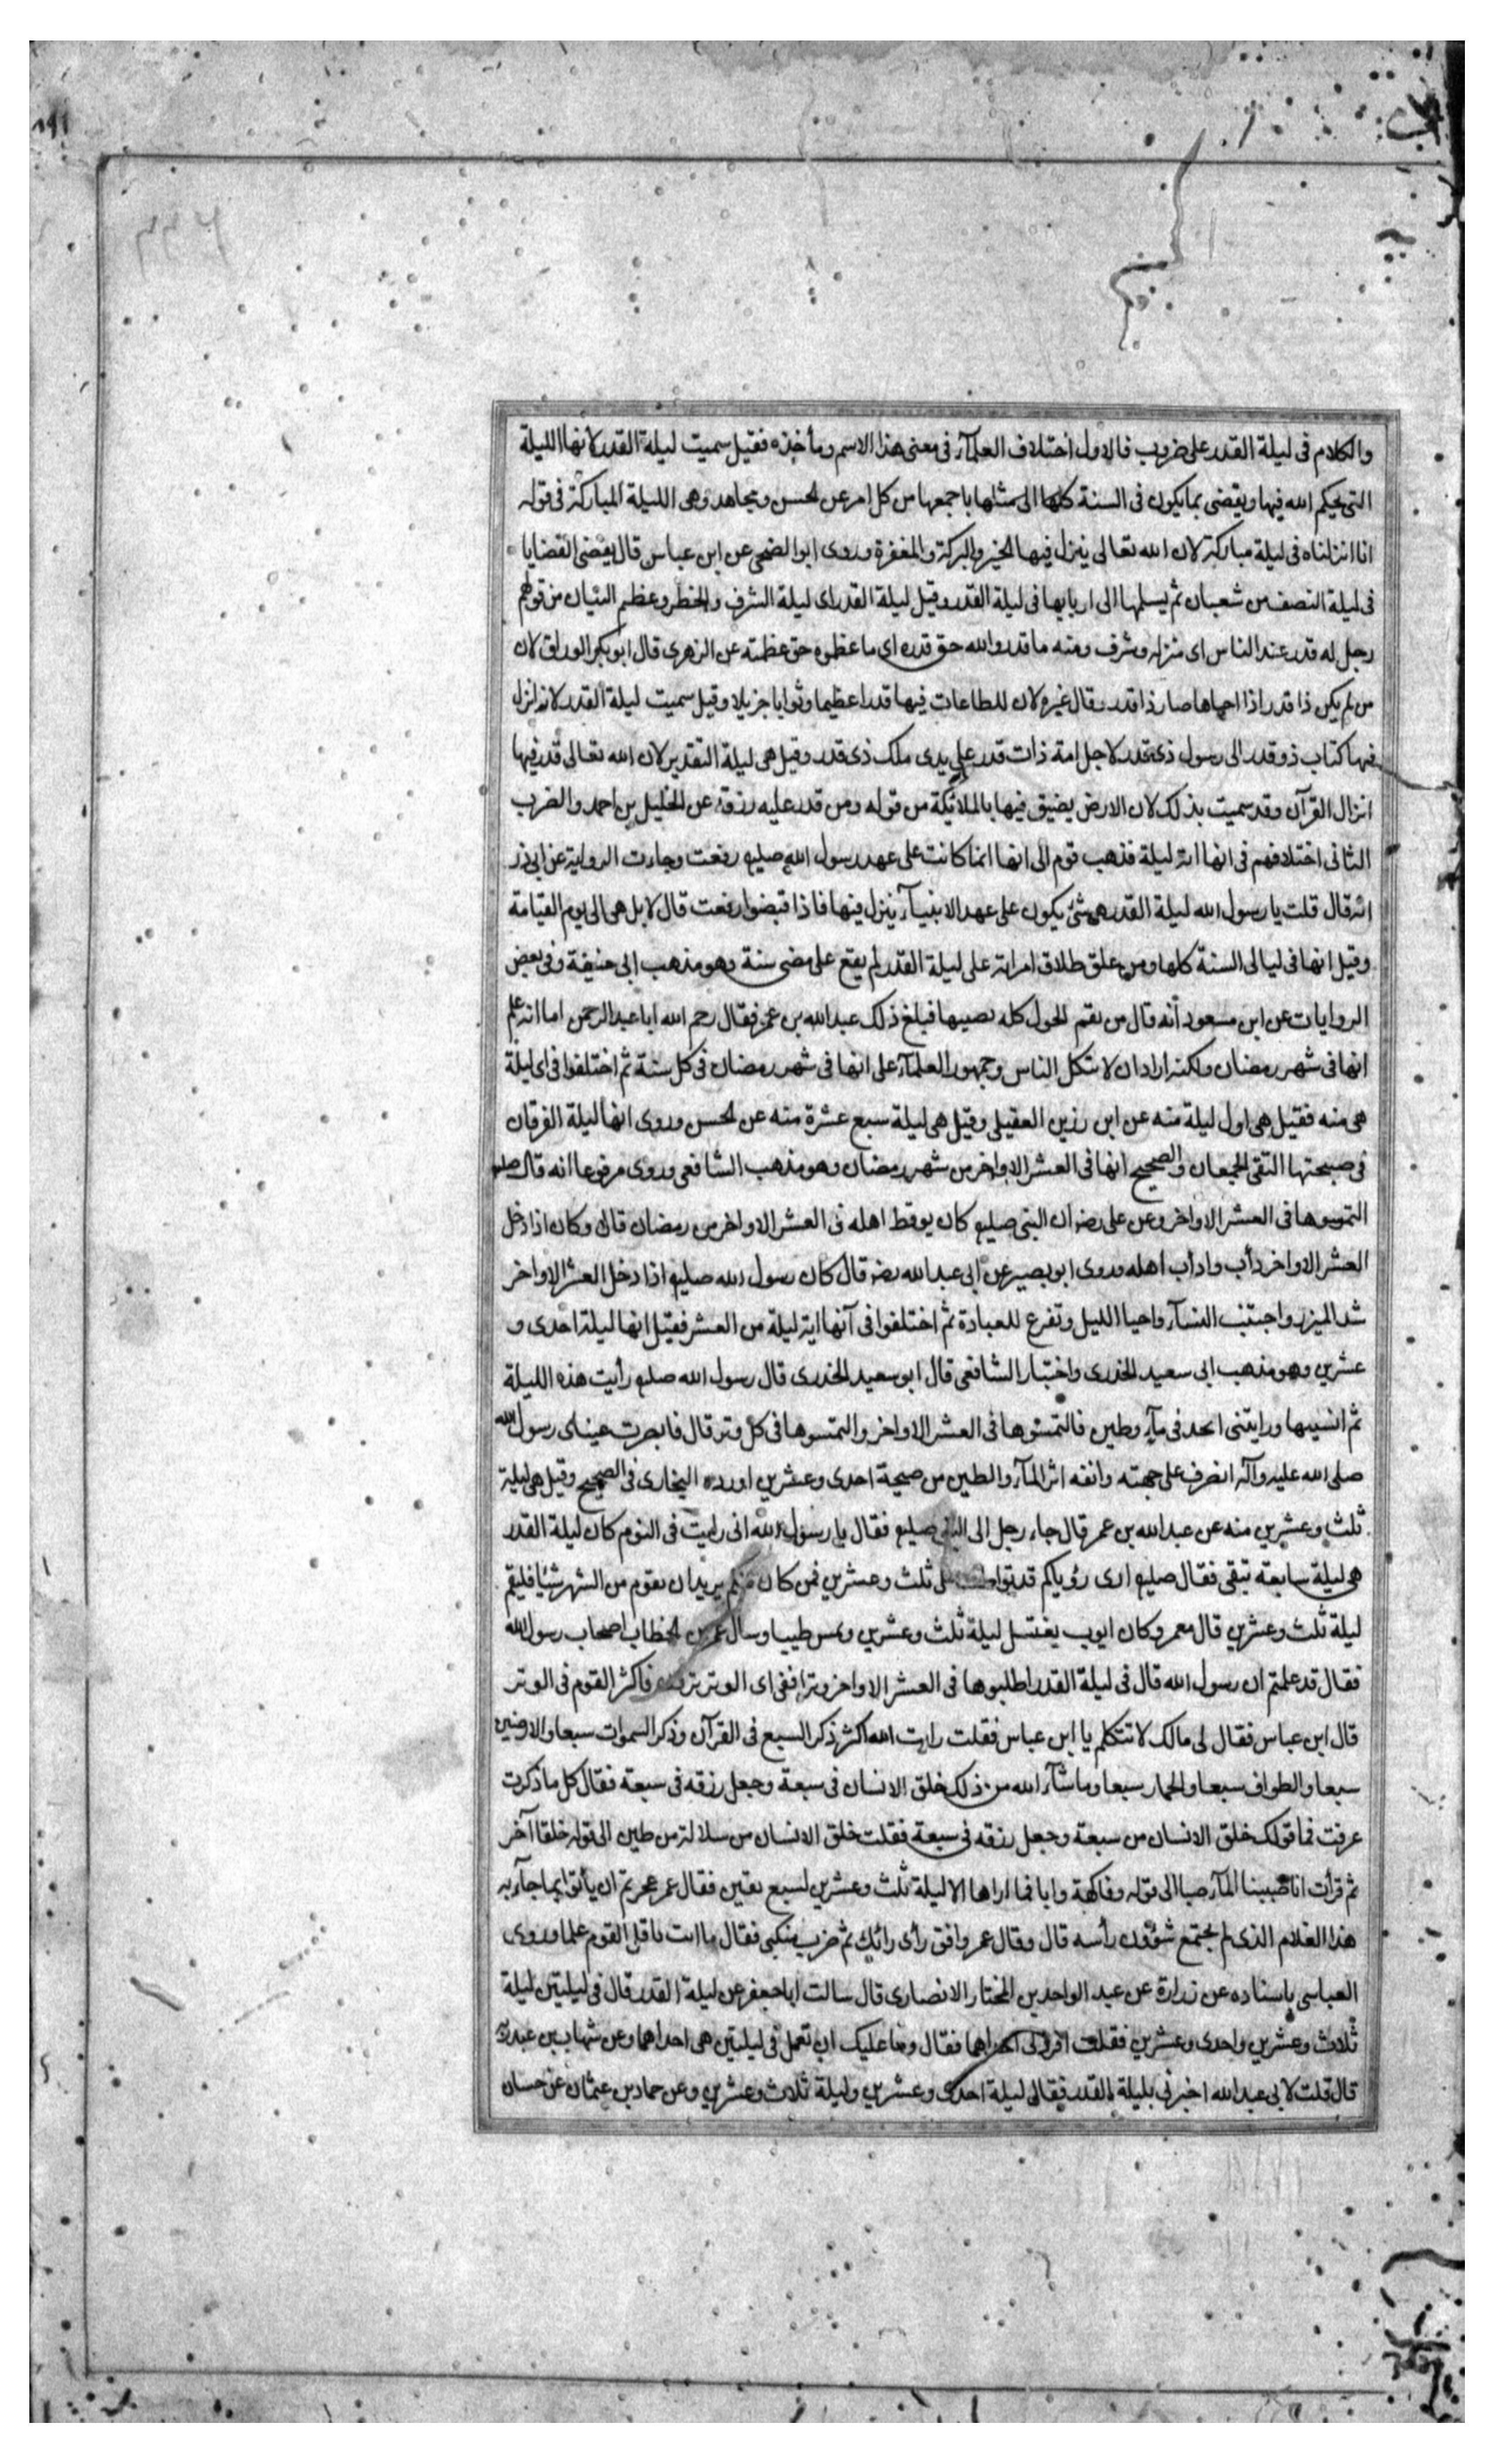 والكلام فى ليلة القدر على ضروب فالاول اختلاف العلمآء فى معنى هذا الاسم ومأخذه فقيل سميت ليلة القدر لأنها الليلة
التى يحكم الله فيها ويقضى بما يكون فى السنة كلها الى مثلها باجمعها من كل امر عن الحسن ومجاهد وهى الليلة المباركة فى قوله
انا انزلناه فى ليلة مباركة لان الله تعالى ينزل فيها الخير والبركة والمغفرة وروى ابو الضحى عن ابن عباس قال يقضى القضايا
فى ليلة النصف من شعبان ثم يسلمها الى اربابها فى ليلة القدر وقيل ليلة القدر اى ليلة الشرف والخطر وعظيم الشان من قولهم
رجل له قدر عند الناس اى منزلة وشرف ومنه ما قدروا الله حق قدره اى ما عظموه حق عظمته عن الزهرى قال ابو بكر الوراق لان
من لم يكن ذا قدر اذا احياها صار ذا قدر وقال غيره لان للطاعات فيها قدرا عظيما وثوابا جزيلا وقيل سميت ليلة القدر لانه انزل
فيها كتاب ذو قدر الى رسول ذى قدر لاجل امة ذات قدر على يدى ملك ذى قدر وقيل هى ليلة التقدير لان الله تعالى قدر فيها
انزال القرآن وقد سميت بذلك لان الارض يضيق فيها بالملائكة من قوله ومن قدر عليه رزقه عن الخليل بن احمد والضرب
الثانى اختلافهم فى انها اية ليلة فذهب قوم الى انها انما كانت على عهد رسول الله صلیع رفعت وجاءت الرواية عن ابى ذر
انه قال قلت يا رسول الله ليلة القدر هى شئ يكون على عهد الانبيآء ينزل فيها فاذا قبضوا رفعت قال لا بل هى الى يوم القيامة
وقيل انها فى ليالى السنة كلها ومن علق طلاق امراته على ليلة القدر لم يقع على مضى سنة وهو مذهب ابى حنيفة وفى بعض
الروايات عن ابن مسعود أنه قال من يقم الحول كله يصيبها فبلغ ذلك عبد الله بن عمر فقال رحم الله ابا عبد الرحمن اما انه علم
انها فى شهر رمضان ولكنه اراد ان لا يتكل الناس وجمهور العلمآء على انها فى شهر رمضان فى كل سنة ثم اختلفوا فى اى ليلة
هى منه فقيل هى اول ليلة منه عن ابن رزين العقيلى وقيل هى ليلة سبع عشرة منه عن الحسن وروى انها ليلة الفرقان
فى صبيحتها التقى الجمعان والصحيح انها فى العشر الاواخر من شهر رمضان وهو مذهب الشافعى وروى مرفوعا انه قال صلیع
التمسوها فى العشر الاواخر وعن على رضه ان النبى صلیع كان يوقظ اهله فى العشر الاواخر من رمضان قال وكان اذا دخل
العشر الاواخر دأب وادأب اهله وروى ابو بصير عن ابى عبد الله رضه قال كان رسول الله صلیع اذا دخل العشر الاواخر
شد الميزر واجتنب النسآء واحيا الليل وتفرغ للعبادة ثم اختلفوا فى أنها اية ليلة من العشر فقيل انها ليلة احدى و
عشرين وهو مذهب ابى سعيد الخدرى واختيار الشافعى قال ابو سعيد الخدرى قال رسول الله صلیع رأيت هذه الليلة
ثم انسيتها ورايتنى اسجد فى مآء وطين فالتمسوها فى العشر الاواخر والتمسوها فى كل وتر قال فابصرت عيناى رسول الله
صلى الله عليه وآله انصرف على جبهته وانفه اثر المآء والطين من صبيحة احدى وعشرين اورده البخارى فى الصحيح وقيل هى ليلة
ثلث وعشرين منه عن عبد الله بن عمر قال جاء رجل الى النبى صلیع فقال يا رسول الله انى رايت فى النوم كان ليلة القدر
هى ليلة سابعة تبقى فقال صلیع ارى رؤياكم قد تواطت على ثلث وعشرين فمن كان منكم يريد ان يقوم من الشهر شيئا فليقم
ليلة ثلث وعشرين قال معمر وكان ايوب يغتسل ليلة ثلث وعشرين ويمس طيبا وسال عمر بن الخطاب اصحاب رسول الله
فقال قد علمتم ان رسول الله قال فى ليلة القدر اطلبوها فى العشر الاواخر وترا ففى اى الوتر ترون فاكثر القوم فى الوتر
قال ابن عباس فقال لى مالك لا تتكلم يا ابن عباس فقلت رايت الله اكثر ذكر السبع فى القرآن وذكر السموات سبعا والارضين
سبعا والطواف سبعا والجمار سبعا وما شآء الله من ذلك خلق الانسان فى سبعة وجعل رزقه فى سبعة فقال كل ما ذكرت
عرفت فما قولك خلق الانسان من سبعة وجعل رزقه فى سبعة فقلت خلق الانسان من سلالة من طين الى قوله خلقا آخر
ثم قرأت انا صببنا المآء صبا الى قوله وفاكهة وابا فما اراها الا ليلة ثلث وعشرين لسبع بقين فقال عمر عجزتم ان يأتوا بما جآء به
هذا الغلام الذى لم يجتمع شؤون رأسه قال وقال عمر وافق رأى رائك ثم ضرب منكبى فقال ما انت باقل القوم علما وروى
العياسى باسناده عن زرارة عن عبد الواحد بن المختار الانصارى قال سالت ابا جعفر عن ليلة القدر قال فى ليلتين ليلة
ثلاث وعشرين واحدى وعشرين فقلت افرد لى احداهما فقال وما عليك ان تعمل فى ليلتين هى احداهما وعن شهاب بن عبد ربه
قال قلت لابى عبد الله اخبرنى بليلة القدر فقال ليلة احدى وعشرين وليلة ثلاث وعشرين وعن حماد بن عثمان عن حسان